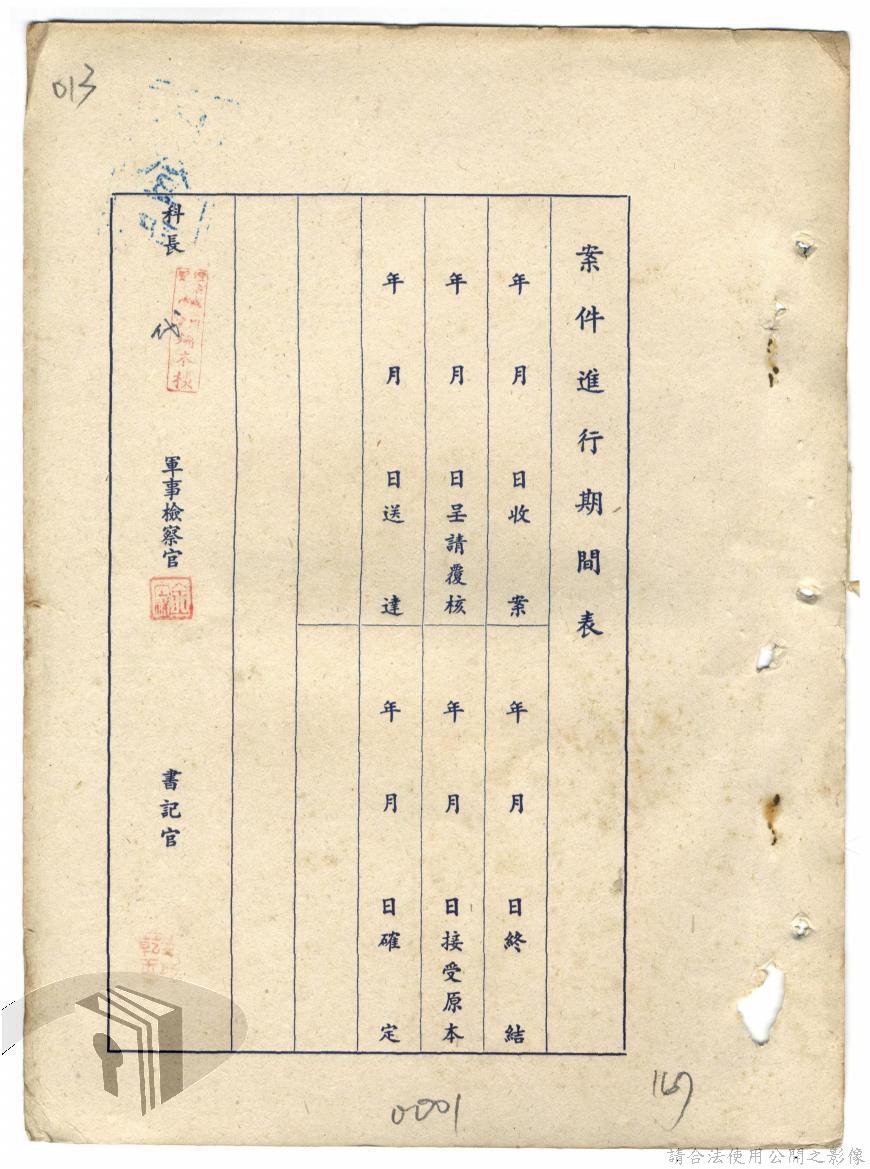 013
案件進行期間表
年 月 日收案
年 月 日終結
年 月 日呈請覆核
年 月 日接受原本
年 月 日送達
年 月 日確定
科長
代
軍事檢察官
書記官
0001
請合法使用公開之影像